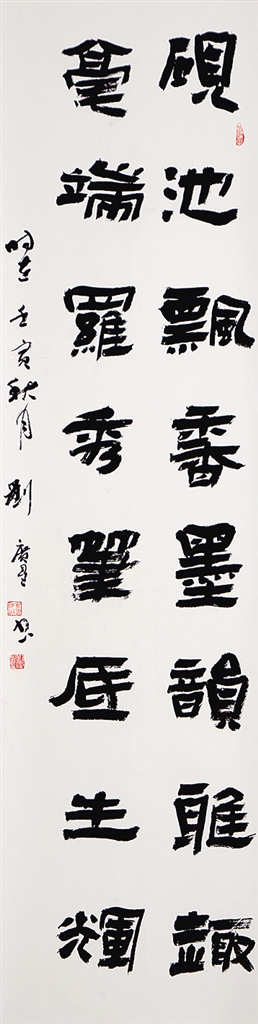 硯池飄香墨韻雅趣
毫端羅秀筆底生輝
時在壬寅秋月劉